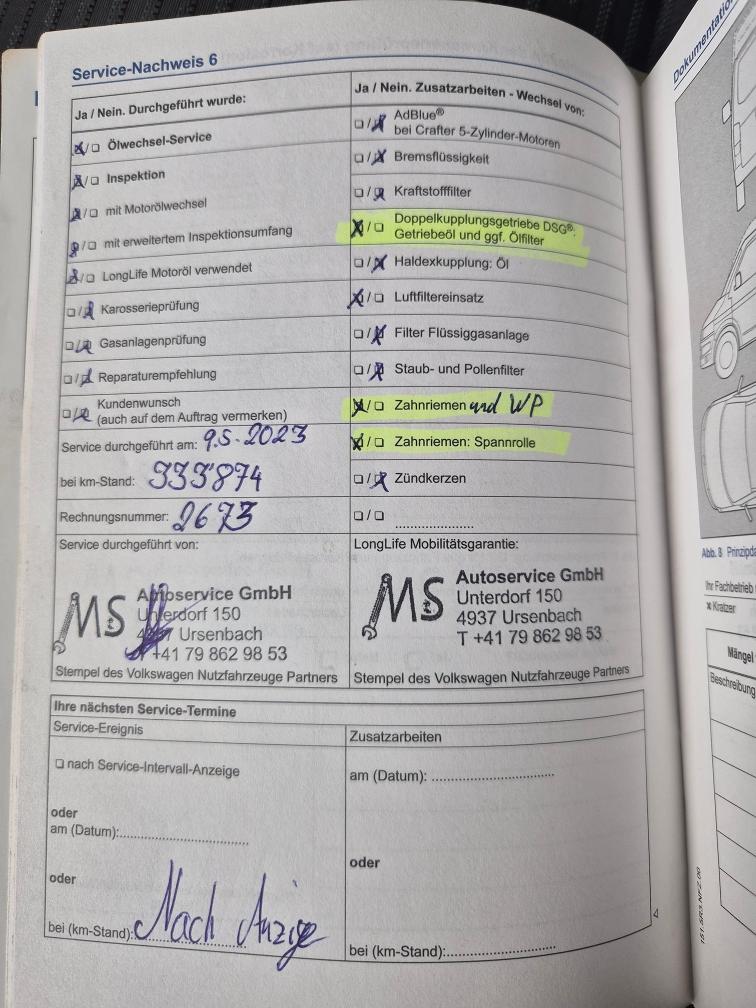 Service-Nachweis 6
Ja / Nein. Durchgeführt wurde:
☒/☐ Ölwechsel-Service
☒/☐ Inspektion
☒/☐ mit Motorölwechsel
☒/☐ mit erweitertem Inspektionsumfang
☒/☐ LongLife Motoröl verwendet
☐/☒ Karosserieprüfung
☐/☒ Gasanlagenprüfung
☐/☒ Reparaturempfehlung
☐/☒ Kundenwunsch
(auch auf dem Auftrag vermerken)
Service durchgeführt am: 9.5.2023
bei km-Stand: 333'874
Rechnungsnummer: 2673
Service durchgeführt von:
MS Autoservice GmbH
Unterdorf 150
4937 Ursenbach
T +41 79 862 98 53
Stempel des Volkswagen Nutzfahrzeuge Partners
Ja / Nein. Zusatzarbeiten - Wechsel von:
☐/☒ AdBlue®
bei Crafter 5-Zylinder-Motoren
☐/☒ Bremsflüssigkeit
☐/☒ Kraftstofffilter
☒/☐ Doppelkupplungsgetriebe DSG®:
Getriebeöl und ggf. Ölfilter
☐/☒ Haldexkupplung: Öl
☒/☐ Luftfiltereinsatz
☐/☒ Filter Flüssiggasanlage
☐/☒ Staub- und Pollenfilter
☒/☐ Zahnriemen und WP
☒/☐ Zahnriemen: Spannrolle
☐/☒ Zündkerzen
☐/☐ ......................
LongLife Mobilitätsgarantie:
MS Autoservice GmbH
Unterdorf 150
4937 Ursenbach
T +41 79 862 98 53
Stempel des Volkswagen Nutzfahrzeuge Partners
Ihre nächsten Service-Termine
Service-Ereignis
☐ nach Service-Intervall-Anzeige
oder
am (Datum):
oder
bei (km-Stand): Nach Anzige
Zusatzarbeiten
am (Datum):
oder
bei (km-Stand):
4
151.5R3.NFZ.00
Dokumentation
Abb. 8 Prinzipda
Ihr Fachbetrieb
x Kratzer
Mängel
Beschreibung